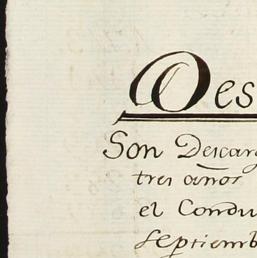 Des
Son Descarg
tres años
el Condu
septiemb